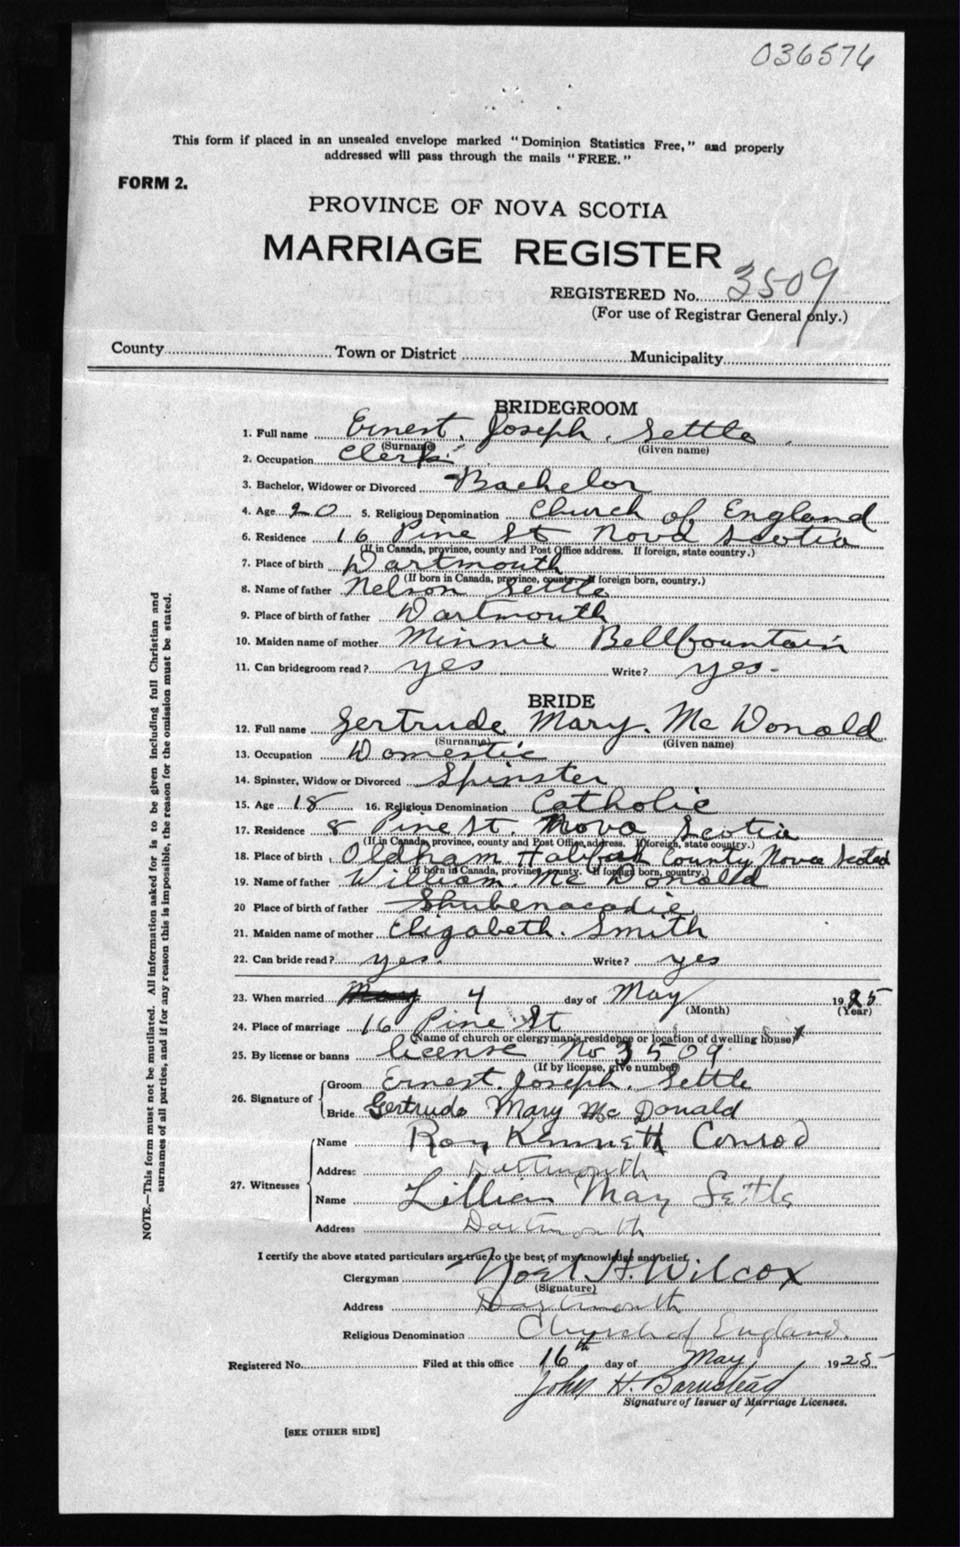 036576
This form if placed in an unsealed envelope marked "Dominion Statistics Free," and properly
addressed will pass through the mails "FREE."
FORM 2.
PROVINCE OF NOVA SCOTIA
MARRIAGE REGISTER
REGISTERED No. 3509
(For use of Registrar General only.)
County Town or District Municipality
BRIDEGROOM
1. Full name Ernest Joseph Settle
(Surname) (Given name)
2. Occupation Clerk
3. Bachelor, Widower or Divorced Bachelor
4. Age 20 5. Religious Denomination Church of England
6. Residence 16 Pine St Nova Scotia
(If in Canada, province, county and Post Office address. If foreign, state country.)
7. Place of birth Dartmouth
(If born in Canada, province, county. If foreign born, country.)
8. Name of father Nelson Settle
9. Place of birth of father Dartmouth
10. Maiden name of mother Minnie Bellfountain
11. Can bridegroom read? yes Write? yes-
BRIDE
12. Full name Gertrude Mary. Mc Donald
(Surname) (Given name)
13. Occupation Domestic
14. Spinster, Widow or Divorced Spinster
15. Age 18 16. Religious Denomination Catholic
17. Residence 8 Pine St. Nova Scotia
(If in Canada, province, county and Post Office address. If foreign, state country.)
18. Place of birth Oldham Halifax County Nova Scotia
(If born in Canada, province, county. If foreign born, country.)
19. Name of father William Mc Donald
20 Place of birth of father Shubenacadie
21. Maiden name of mother Elizabeth. Smith
22. Can bride read? yes. Write? yes
23. When married May 4 day of May 1925
(Month) (Year)
24. Place of marriage 16 Pine St
(Name of church or clergyman's residence or location of dwelling house)
25. By license or banns license No 3509
(If by license, give number)
26. Signature of Groom Ernest. Joseph. Settle
Bride Gertrude Mary Mc Donald
27. Witnesses Name Roy Kenneth Conrod
Address Dartmouth
Name Lillian May Settle
Address Dartmouth
I certify the above stated particulars are true to the best of my knowledge and belief,
Clergyman Noel H. Wilcox
(Signature)
Address Dartmouth
Religious Denomination Church of England.
Registered No. Filed at this office 16th day of May 1925
John H. Barnstead
Signature of Issuer of Marriage Licenses.
[SEE OTHER SIDE]
NOTE.—This form must not be mutilated. All information asked for is to be given including full Christian and
surnames of all parties, and if for any reason this is impossible, the reason for the omission must be stated.